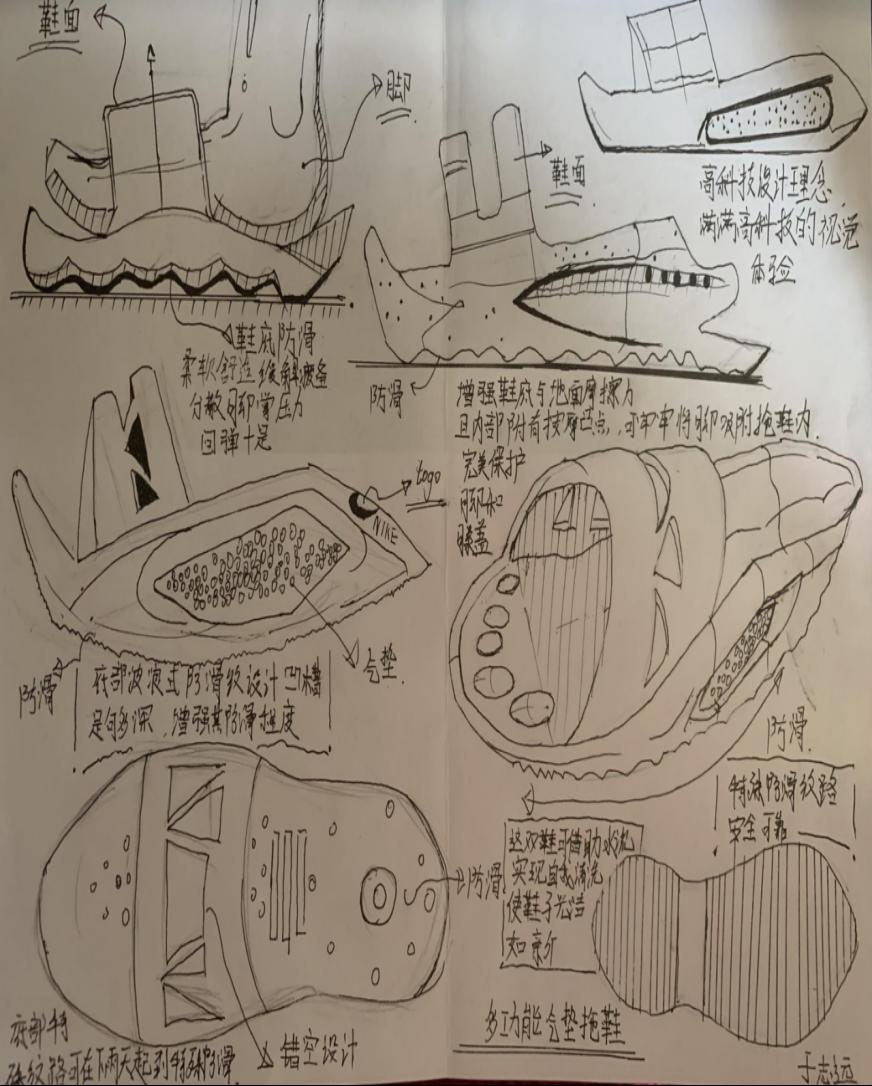 鞋面
脚
鞋面
高科技设计理念
满满高科技的视觉
体验
鞋底防滑
柔软舒适缓解疲备
分散脚掌压力
回弹十足
防滑
增强鞋底与地面摩擦力
且内部附有按摩凸点,可牢牢将脚吸附拖鞋内.
完美保护
脚和
膝盖
logo
NIKE
气垫
防滑
底部波浪式防滑纹设计凹槽
足够深,增强其防滑程度
防滑
特殊防滑纹路
安全可靠
防滑
这双鞋可借助水流
实现自我清洗
使鞋子光洁
如
底部特
殊纹路可在下雨天起到特殊防滑
镂空设计
多功能气垫拖鞋
于志远